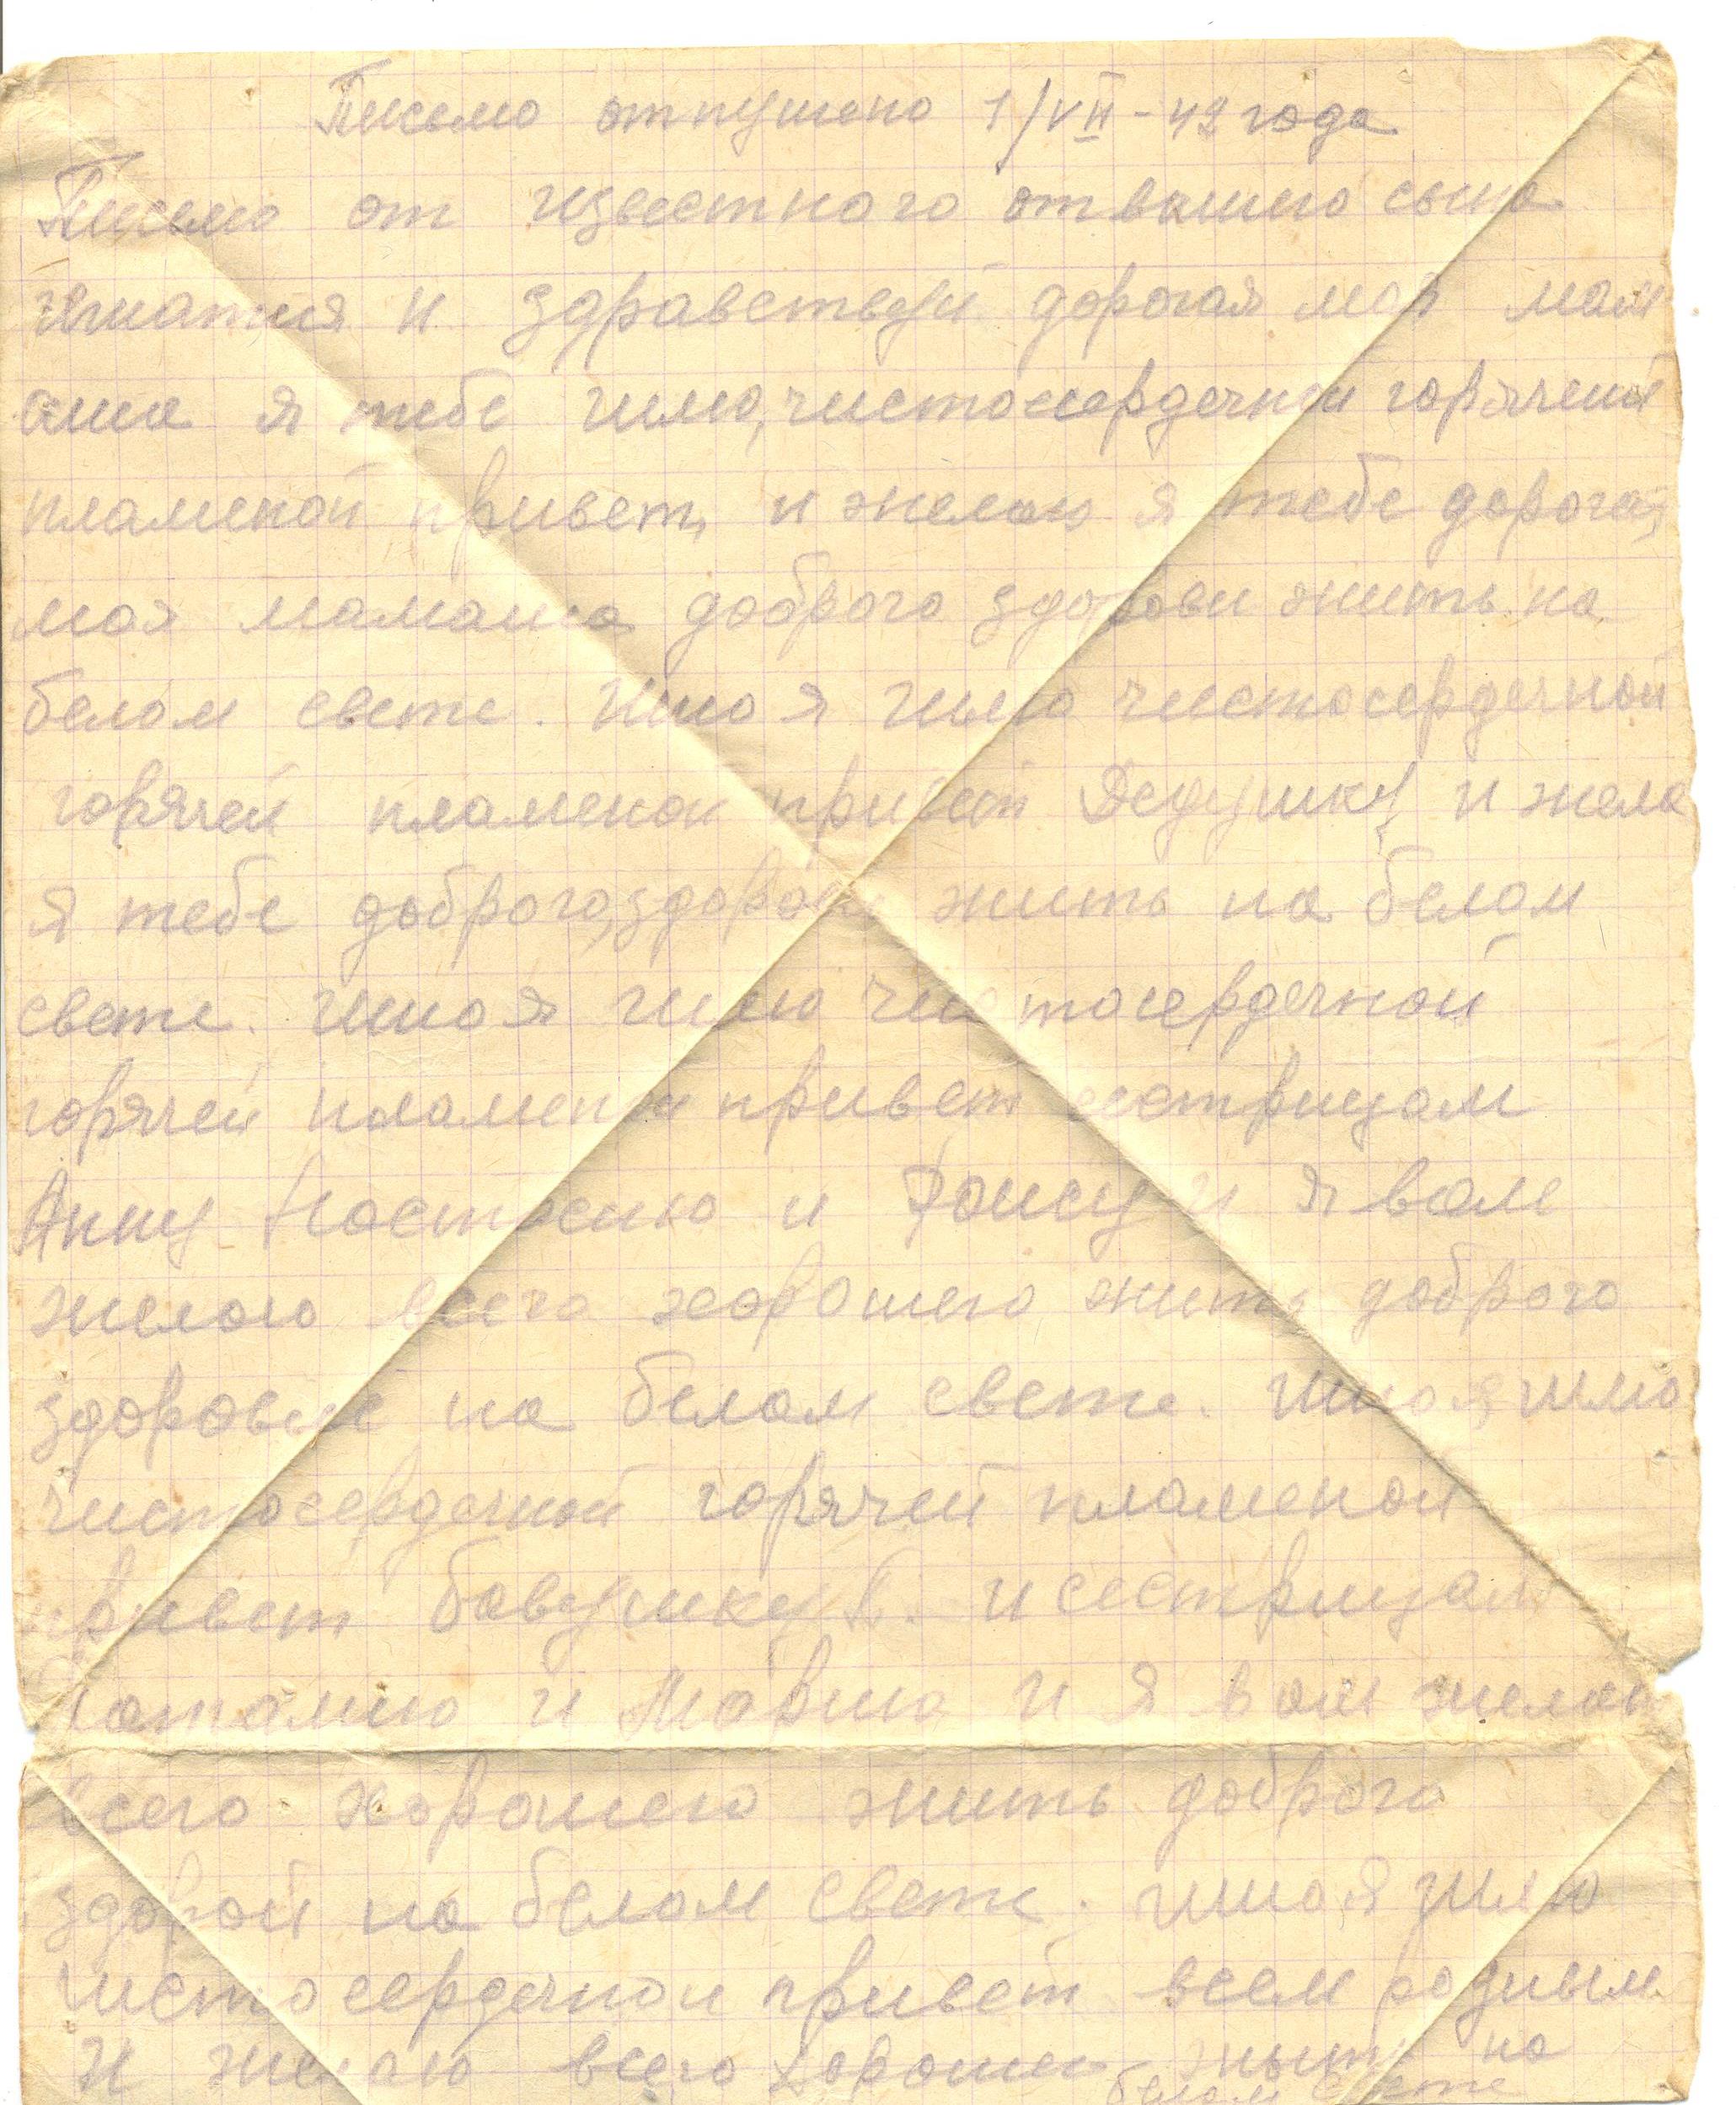 Письмо отпущено 1/VII-42 года
Письмо от известного от вашего сына
Игнатия и здравствуй дорогая моя мам
аша я тебе шлю, чистосердечной горячей
пламеной привет, и желаю я тебе дорогая
моя мамаша доброго здорови жить на
белом свете. Ишо я шлю чистосердечной
горячей пламеной привет Дедушку и жела
я тебе доброго, здорови жить на белом
свете. ишо я шлю чистосердечной
горячей пламеной привет сестрицам
Анну Настасию и Раису и я вам
желаю всего хорошего жить доброго
здоровие на белом свете. ишо я шлю
чистосердечной горячей пламеной
привет бавушку и сестрицам
и Марию и я вам желаю
всего хорошего жить доброго
здорой на белом свете. ишо я шлю
чистосердечной привет всем родным
и желаю всего хорошего жить на
белом свете